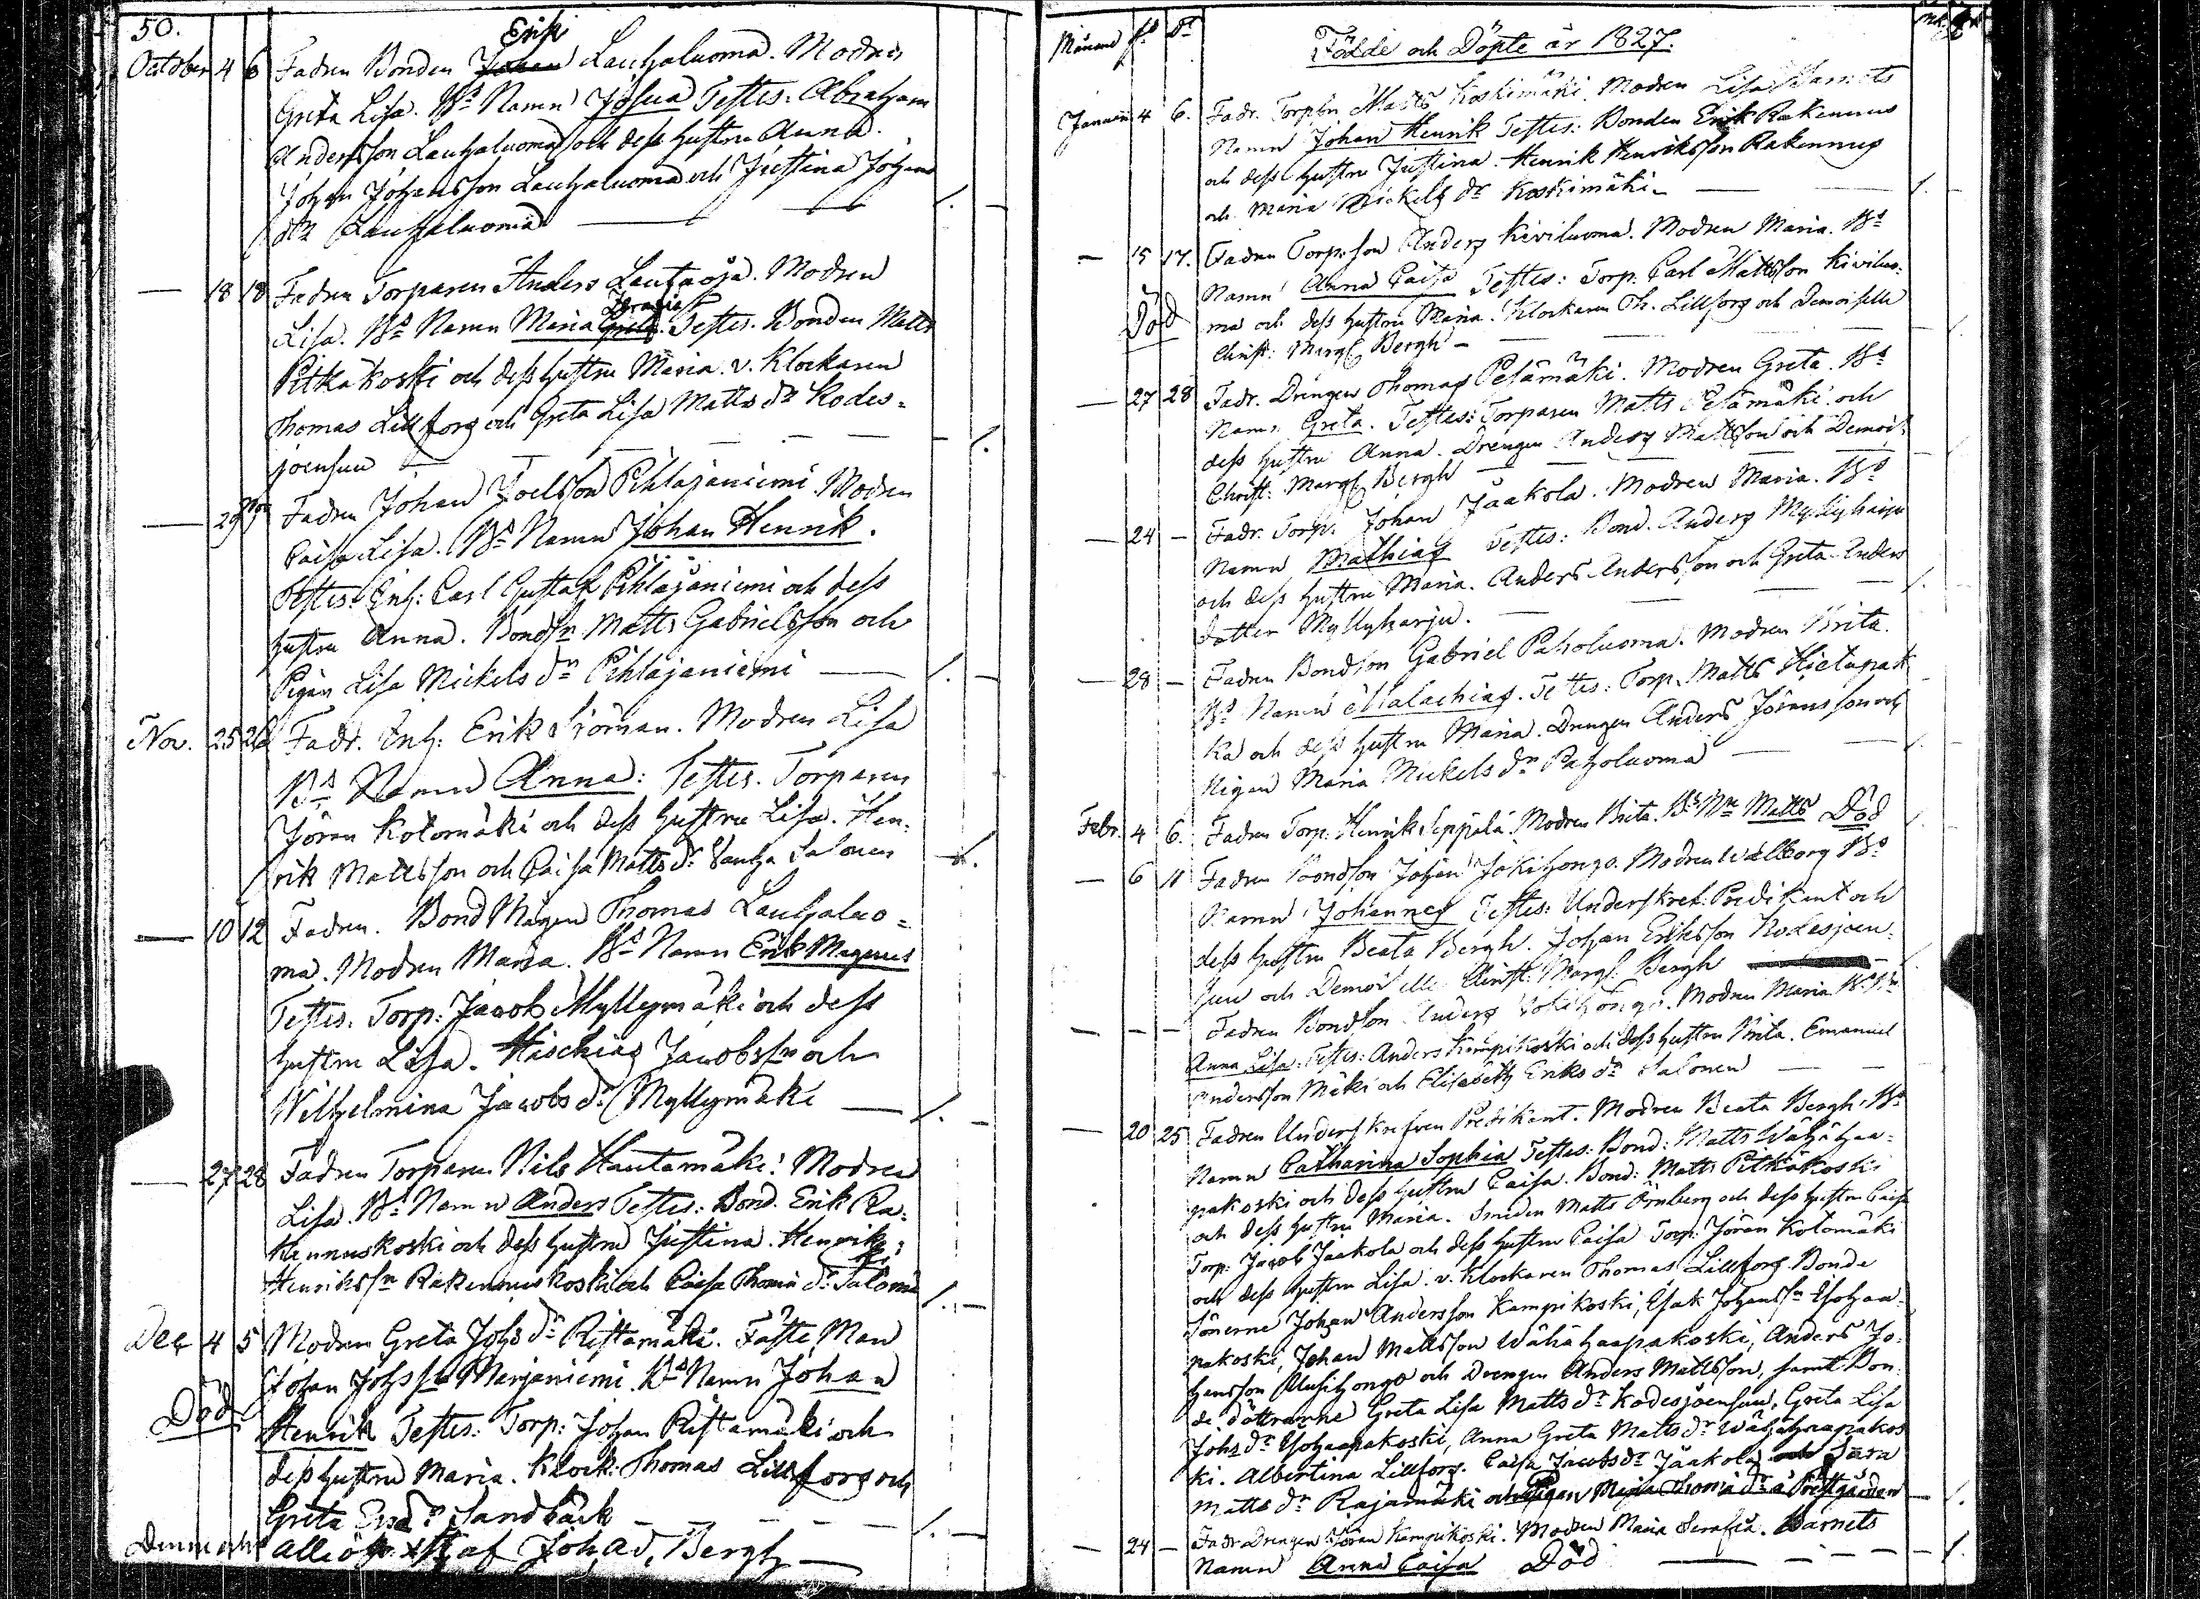 50.
October 4 6 Fadren Bonden Johan Erik Lauhaluoma. Modren
Greta Lisa. Bs Namn Josua Testes: Abraham
Andersson Lauhaluoma och dess hustru Anna.
Johan Johansson Lauhaluoma och Justina Johans
dr Lauhaluoma
— 18 18 Fadren Torparen Anders Lautaoja. Modren
Lisa. Bs Namn Maria Testes. Bonden Matts
Pitkäkoski och dess hustru Maria. v. Klockaren
Thomas Lillfors och Greta Lisa Matts dr Kodes-
joensuu
— 29 Fadren Johan Joelsson Pihlajaniemi Modren
Caisa Lisa. Bs Namn Johan Henrik.
Testes: Inh: Carl Gustaf Pihlajaniemi och dess
hustru Anna. Bondsn Matts Gabrielsson och
Pigan Lisa Mickels dr Pihlajaniemi
Nov. 25 26 Fadr. Inh: Erik Sjöman. Modren Lisa
Bs Namn Anna: Testes. Torparen
Jöran Kotomäki och dess hustru Lisa. Hen-
rik Mattsson och Caisa Matts dr Salonen
— 10 12 Fadren. Bond Mågen Thomas Lauhaluo-
ma. Modren Maria. Bs Namn Erik Magnus
Testes. Torp: Jacob Myllymäki och dess
hustru Lisa. Hischias Jacobssn och
Wilhelmina Jacobs dr Myllymäki
— 27 28 Fadren Torparen Nils Hautamäki. Modren
Lisa. Bs Namn Anders Testes: Bond. Erik Ra-
kennuskoski och dess hustru Justina. Henrik
Henrikssn Rakennuskoski och Caisa Thomæ dr
Dec 4 5 Modren Greta Johs dr Ristamäki. Fäste Man
Johan Johssn Marjaniemi. Bs Namn Johan
Död
Henrik Testes: Torp: Johan Ristamäki och
dess hustru Maria. Klock: Thomas Lillfors och
Greta Sandbäck
af Joh. Ad. Bergh
Månad fd Dt
Födde och Döpte år 1827.
Januari 4 6. Fadr. Torpsn Matts Koskimäki. Modren Lisa Barnets
Namn Johan Henrik Testes: Bonden Erik Rakennus
och dess hustru Justina. Henrik Henriksson Rakennus
och Maria Mickels dr Koskimäki
— 15 17. Fadren Torp: son Anders Kiviluoma. Modren Maria. Bs
Namn Anna Caisa Testes: Torp. Carl Mattsson Kiviluo-
Död
ma och dess hustru Maria. Klockaren Th. Lillfors och Demoiselle
Christ: Margt Bergh
— 27 28 Fadr. Drengen Thomas Petämäki. Modren Greta. Bs
Namn Greta. Testes: Torparen Matts Petämäki och
dess hustru Anna. Drengen Anders Mattsson och Demois:
Christ: Margt Bergh
— 24 — Fadr. Torp. Johan Jaakola. Modren Maria. Bs
Namn Mathias Testes: Bond. Anders Myllyharju
och dess hustru Maria. Anders Andersson och Greta Anders
dotter Myllyharju.
— 28 — Fadren Bondson Gabriel Paholuoma. Modren Brita.
Bs Namn Malachias. Testes: Torp. Matts Hietapak
ka och dess hustru Maria. Drengen Anders Jöransson och
Pigan Maria Mickels dr Paholuoma
Febr. 4 6. Fadren Torp: Henrik Seppälä. Modren Brita. Bs Nn Matts Död
— 6 11 Fadren Bondson Johan Jokihonga. Modren Walborg Bs
Namn Johannes Testes: Underskref: Predikant och
dess hustru Beata Bergh. Johan Eriksson Kodesjoen-
suu och Demoiselle Christ: Margt Bergh
— — — Fadren Bondson Anders Jokihonga. Modren Maria Bs Nn
Anna Lisa: Testes: Anders Kampikoski och dess hustru Brita. Emanuel
Andersson Mäki och Elisabeth Eriks dr Salonen
— 20 25 Fadren Underskrefven Predikant. Modren Beata Bergh. Bs
Namn Catharina Sophia Testes: Bond: Matts Wähähaa-
pakoski och dess hustru Caisa. Bond: Matts Pitkäkoski
och dess hustru Maria. Smeden Matts Örnberg och dess hustru Caisa
Torp: Jacob Jaakola och dess hustru Caisa Torp: Jöran Kotomäki
och dess hustru Lisa. v. Klockaren Thomas Lillfors. Bonde
Sönerne Johan Andersson Kampikoski, Isak Johanssn Isohaa-
pakoski, Johan Mattsson Wähähaapakoski, Anders Jo-
hansson Uusihonga och Drengen Anders Mattsson, samt Bon-
de döttrarne Greta Lisa Matts dr Kodesjoensuu, Greta Lisa
Johs dr Isohaapakoski, Anna Greta Matts dr Wähähaapakos
ki. Albertina Lillfors. Caisa Jacobs dr Jaakola och Sara
Matts dr Rajamäki och Pigan Maja Thomæ dr å Prestgården
— 24 — Fadr Drengen Jöran Kampikoski. Modren Maria Serafia. Barnets
Namn Anna Caisa Död